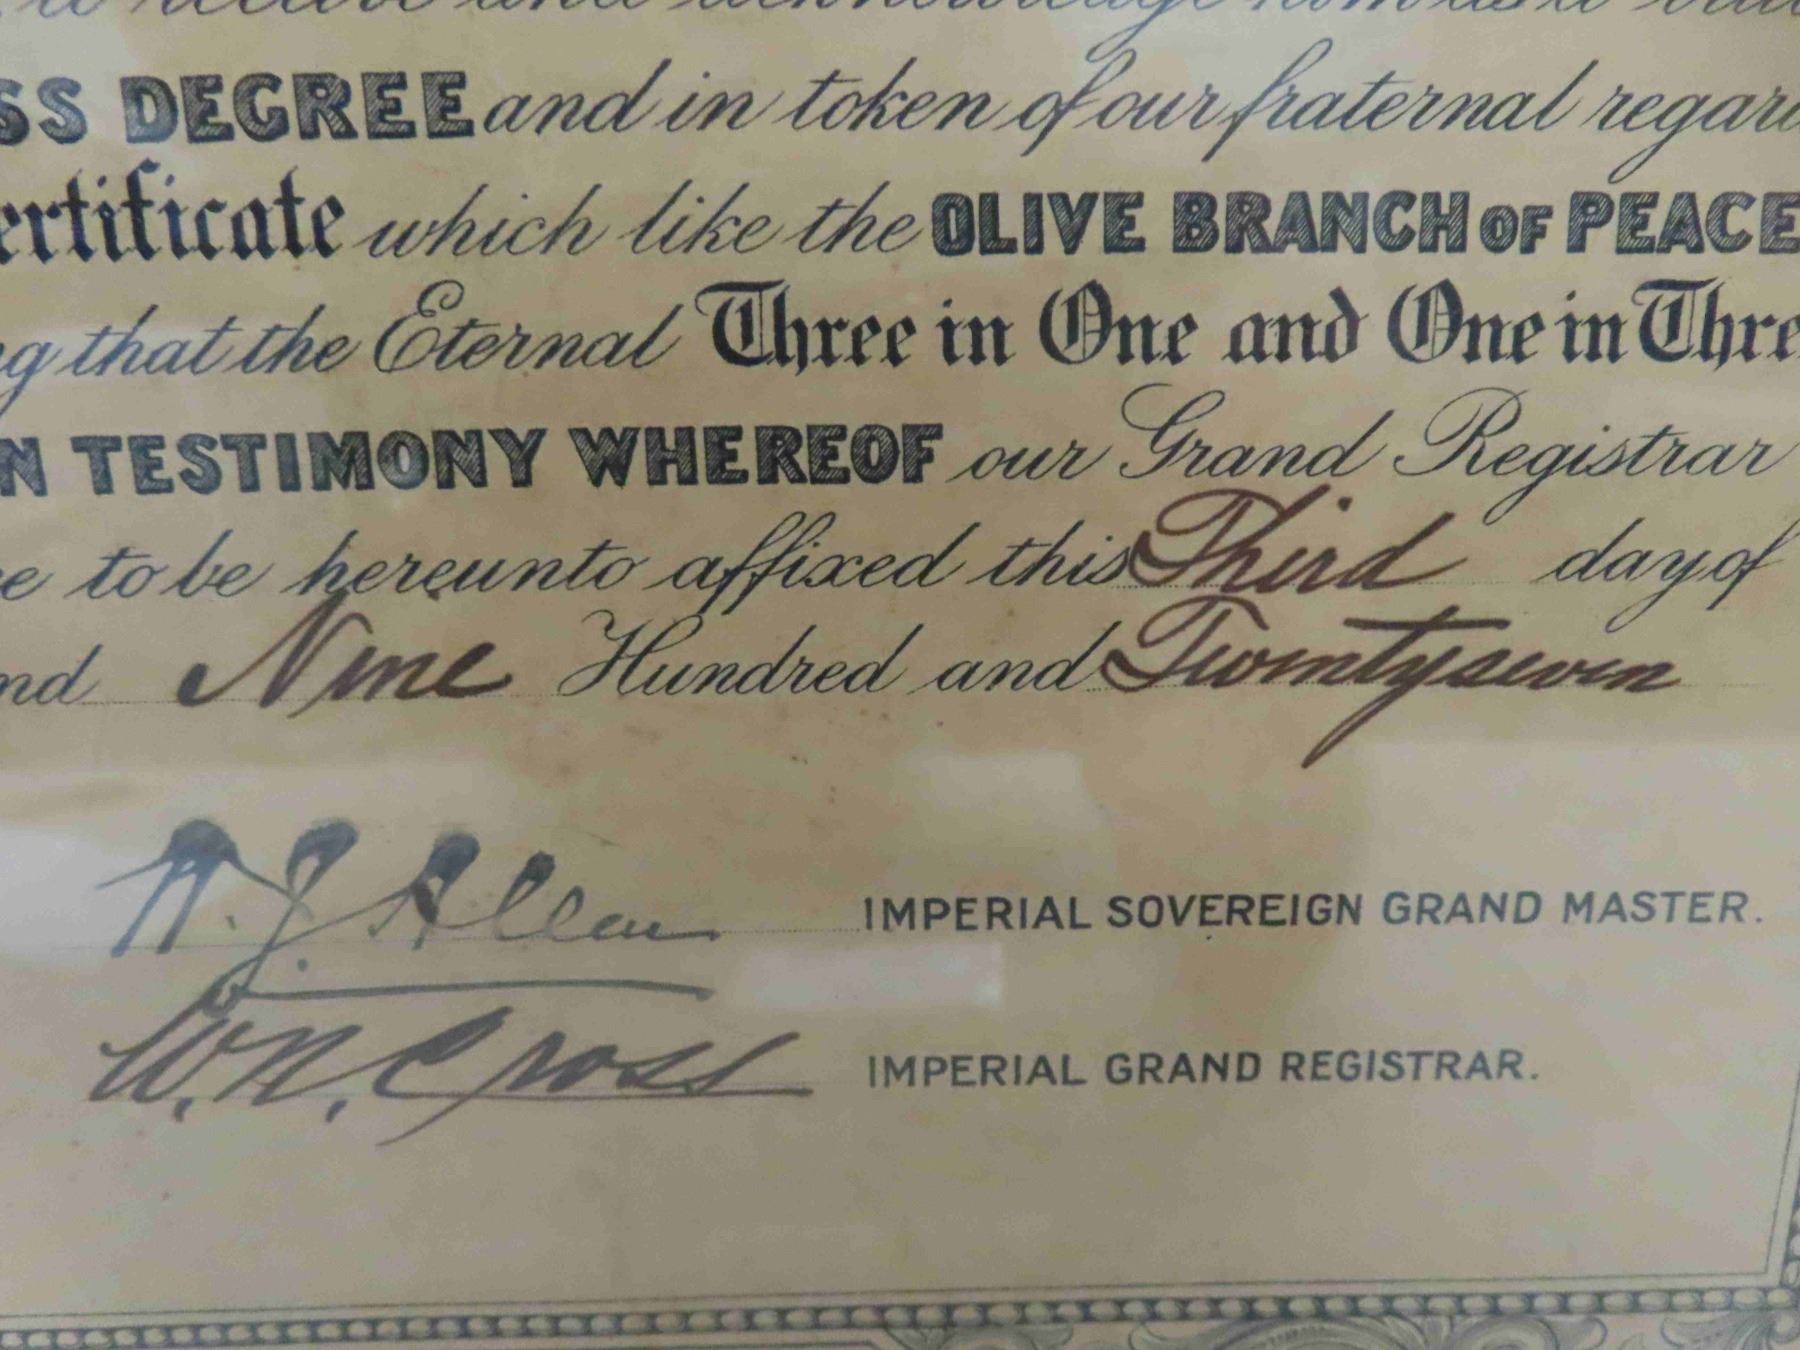 to receive and acknowledge him as a true
SS DEGREE and in token of our fraternal regard
ertificate which like the OLIVE BRANCH OF PEACE
g that the Eternal Three in One and One in Thre
N TESTIMONY WHEREOF our Grand Registrar
e to be hereunto affixed this Third day of
nd Nine Hundred and Twentyseven
A. J. Allen IMPERIAL SOVEREIGN GRAND MASTER.
W. N. Cross IMPERIAL GRAND REGISTRAR.